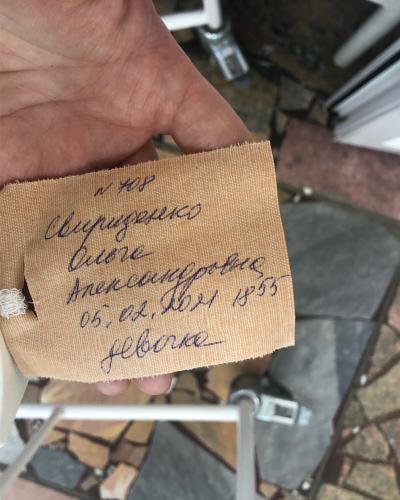 N 708
Свириденко
Ольга
Александровна
05.02.2021 18 55
девочка